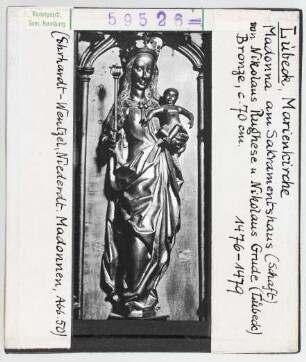 Kunstgesch.
Sem. Hamburg
59526
Lübeck, Marienkirche
Madonna am Sakramentshaus (Schaft)
von Nikolaus Rughese u Nikolaus Grude (Lübeck)
Bronze, c. 70 cm. 1476-1479
(Ehrhardt-Wentzel, Niederdt. Madonnen, Abb. 50)